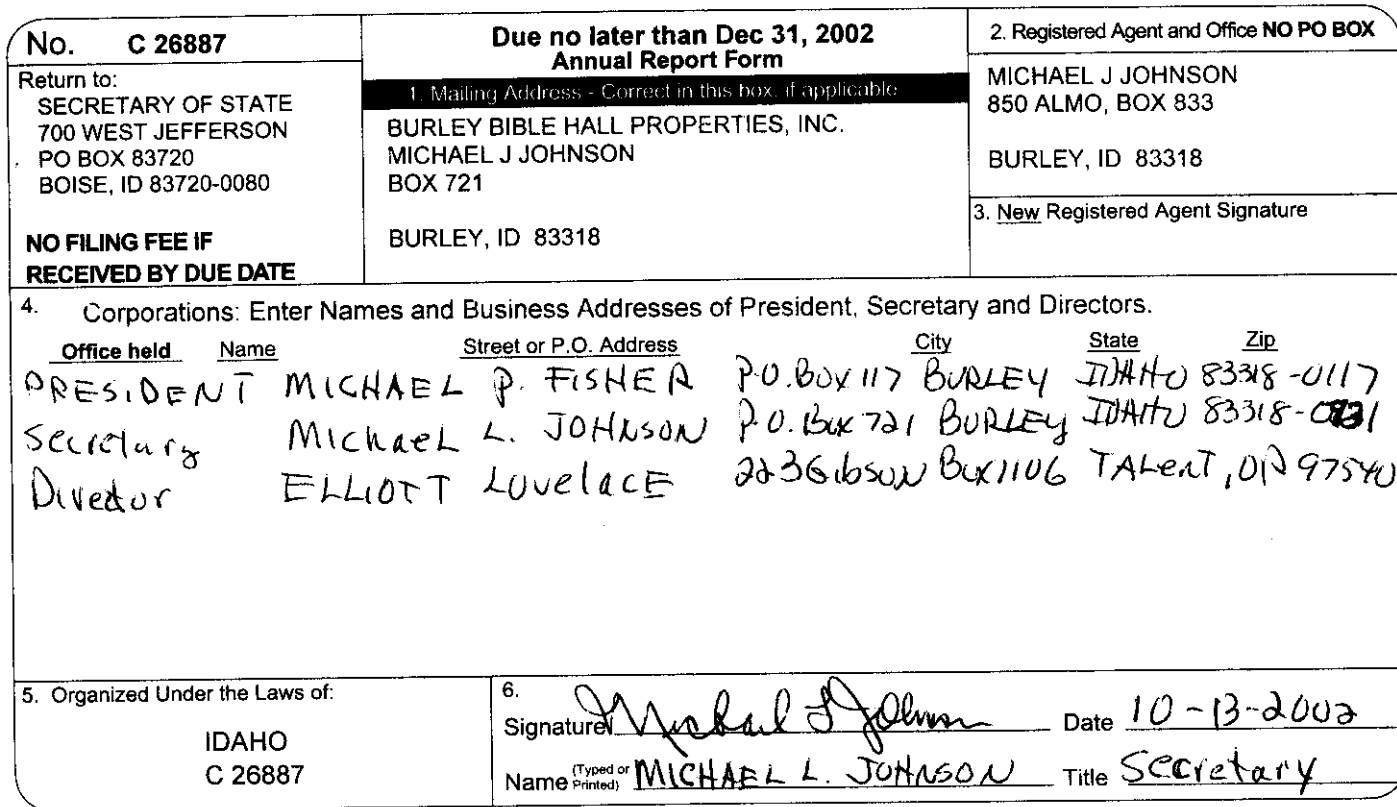 No. C 26887
Return to:
SECRETARY OF STATE
700 WEST JEFFERSON
PO BOX 83720
BOISE, ID 83720-0080
NO FILING FEE IF
RECEIVED BY DUE DATE
Due no later than Dec 31, 2002
Annual Report Form
1. Mailing Address - Correct in this box, if applicable
BURLEY BIBLE HALL PROPERTIES, INC.
MICHAEL J JOHNSON
BOX 721
BURLEY, ID 83318
2. Registered Agent and Office NO PO BOX
MICHAEL J JOHNSON
850 ALMO, BOX 833
BURLEY, ID 83318
3. New Registered Agent Signature
4. Corporations: Enter Names and Business Addresses of President, Secretary and Directors.
Office held Name Street or P.O. Address City State Zip
PRESIDENT MICHAEL P. FISHER P.O. Box 117 BURLEY IDAHO 83318-0117
Secretary Michael L. JOHNSON P.O. Box 721 BURLEY IDAHO 83318
Director ELLIOTT Lovelace 223 Gibson Box 1106 TALENT, OR 97540
5. Organized Under the Laws of:
IDAHO
C 26887
6.
Signature Michael L Johnson Date 10-13-2002
Name (Typed or Printed) MICHAEL L. JOHNSON Title Secretary